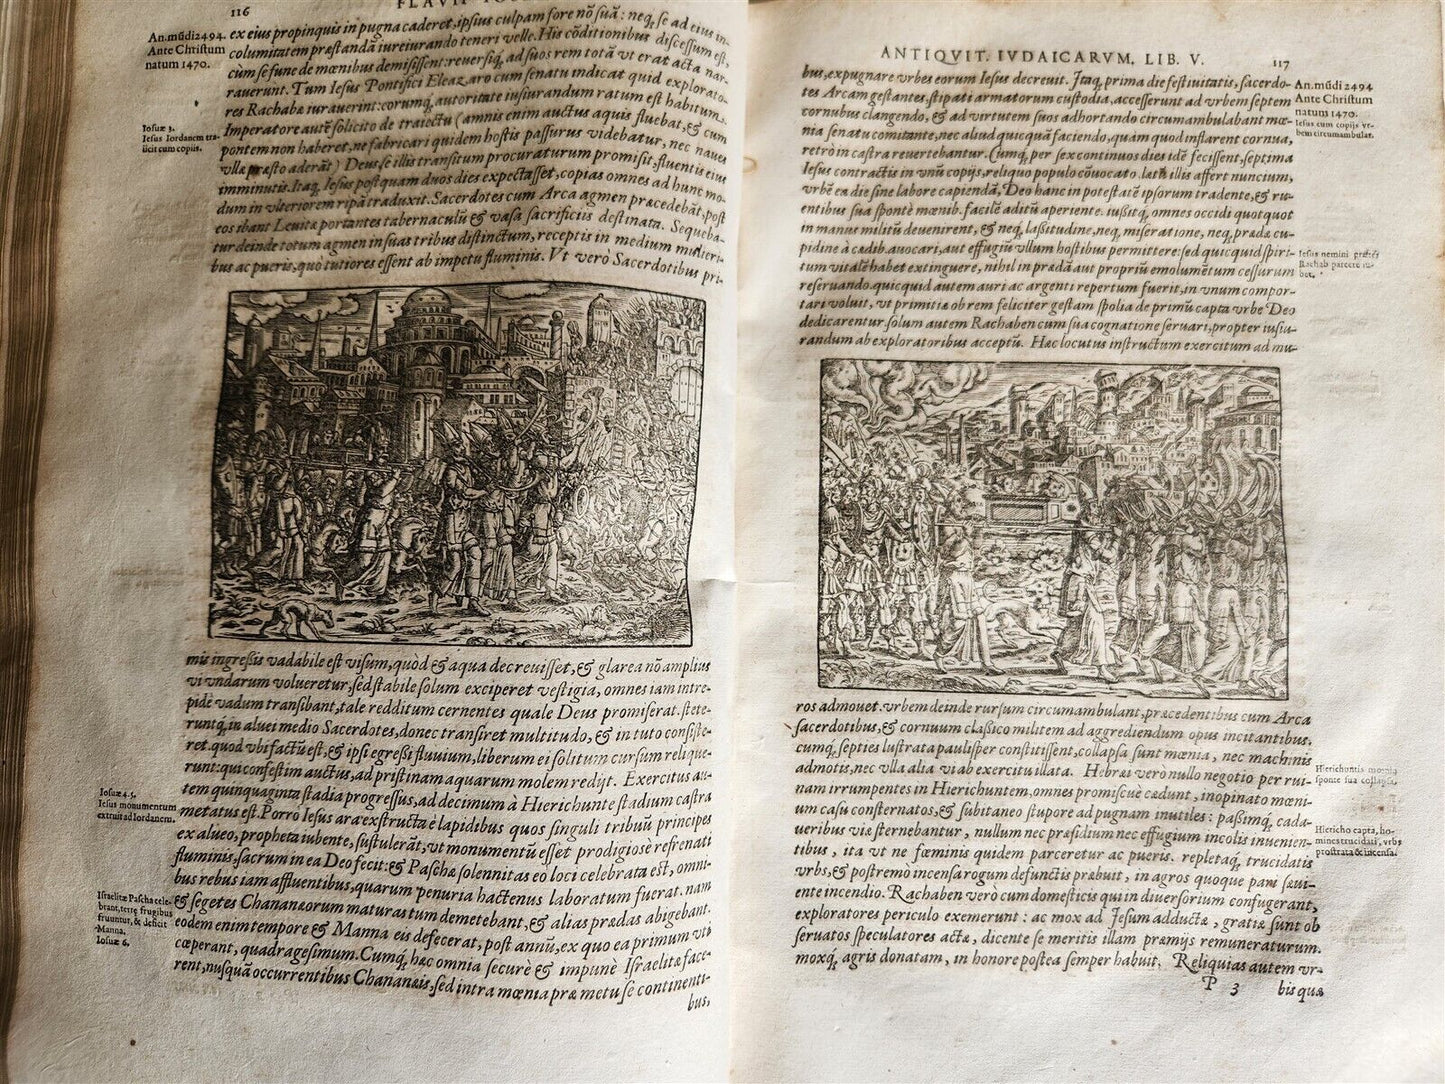 116
FLAVII IOS
An. mũdi 2494.
Ante Christum
natum 1470.
ex eius propinquis in pugna caderet, ipsius culpam fore nõ suã: neq; se ad eius in-
columitatem præstandã iureiurando teneri velle. His cõditionibus discessum est,
cum se fune de mœnibus demisissent: reuersiq́; ad suos rem totã vt erat acta nar-
rauerunt. Tum Iesus Pontifici Eleazaro cum senatu indicat quid explorato-
res Rachabæ iurauerint: eorumq́; autoritate iusiurandum ratum est habitum.
Iosuæ 3.
Iesus Iordanem tra-
ijcit cum copijs.
Imperatore autẽ solicito de traiectu (amnis enim auctus aquis fluebat, & cum
pontem non haberet, ne fabricari quidem hostis passurus videbatur, nec naues
vllæ præsto aderãt) Deus se illis transitum procuraturum promisit, fluentis eius
imminutis. Itaq; Iesus postquam duos dies expectasset, copias omnes ad hunc mo-
dum in vlteriorem ripã traduxit. Sacerdotes cum Arca agmen præcedebãt, post
eos ibant Leuitæ portantes tabernaculũ & vasa sacrificijs destinata. Sequeba-
tur deinde totum agmen in suas tribus distinctum, receptis in medium mulieri-
bus ac pueris, quò tutiores essent ab impetu fluminis. Vt verò Sacerdotibus pri-
mis ingressis vadabile est visum, quòd & aqua decreuisset, & glarea nõ amplius
vi vndarum volueretur, sed stabile solum exciperet vestigia, omnes iam intre-
pidè vadum transibant, tale redditum cernentes quale Deus promiserat. stete-
runtq́; in aluei medio Sacerdotes, donec transiret multitudo, & in tuto consiste-
ret. quod vbi factũ est, & ipsi egreßi fluuium, liberum ei solitum cursum relique-
runt: qui confestim auctus, ad pristinam aquarum molem redijt. Exercitus au-
tem quinquaginta stadia progressus, ad decimum à Hierichunte stadium castra
Iosuæ 4. 5.
Iesus monumentum
extruit ad Iordanem.
metatus est. Porrò Iesus ara extructa è lapidibus quos singuli tribuũ principes
ex alueo, propheta iubente, sustulerãt, vt monumentũ esset prodigiosè refrenati
fluminis, sacrum in ea Deo fecit: & Paschæ solennitas eo loci celebrata est, omni-
bus rebus iam affluentibus, quarum penuria hactenus laboratum fuerat. nam
Israelitæ Pascha cele-
brant, terræ frugibus
fruuntur, & deficit
Manna.
Iosuæ 6.
& segetes Chananæorum maturas tum demetebant, & alias prædas abigebant.
eodem enim tempore & Manna eis defecerat, post annũ, ex quo ea primum vti
cœperant, quadragesimum. Cumq́; hæc omnia securè & impunè Israelitæ face-
rent, nusquã occurrentibus Chananæis, sed intra mœnia præ metu se continenti-
bus,
ANTIQVIT. IVDAICARVM. LIB. V.
117
An. mũdi 2494
Ante Christum
natum 1470.
Iesus cum copijs vr-
bem circumambulat.
bus, expugnare vrbes eorum Iesus decreuit. Itaq; prima die festiuitatis, sacerdo-
tes Arcam gestantes, stipati armatorum custodia, accesserunt ad vrbem septem
cornubus clangendo, & ad virtutem suos adhortando circumambulabant mœ-
nia senatu comitante, nec aliud quicquã faciendo, quàm quod inflarent cornua,
retrò in castra reuertebantur. Cumq́; per sex continuos dies idẽ fecissent, septima
Iesus contractis in vnũ copijs, reliquo populo cõuocato. lætũ illis affert nuncium,
vrbẽ ea die sine labore capiendã, Deo hanc in potestatẽ ipsorum tradente, & ru-
entibus sua spontè mœnib. facilẽ aditũ aperiente. iußitq́; omnes occidi quotquot
in manus militũ deuenirent, & neq; laßitudine, neq; miseratione, neq; prædæ cu-
pidine à cædib. auocari, aut effugiũ vllum hostibus permittere: sed quicquid spiri-
Iesus nemini præter
Rachab parcere iu-
bet.
tum vitalẽ habet extinguere, nihil in prædã aut propriũ emolumẽtum cessurum
reseruando. quicquid autem auri ac argenti repertum fuerit, in vnum compor-
tari voluit, vt primitiæ ob rem feliciter gestam spolia de primũ capta vrbe Deo
dedicarentur. solum autem Rachaben cum sua cognatione seruari, propter iusiu-
randum ab exploratoribus acceptũ. Hæc locutus instructum exercitum ad mu-
ros admouet. vrbem deinde rursum circumambulant, præcedentibus cum Arca
sacerdotibus, & cornuum classico militem ad aggrediendum opus incitantibus.
cumq́; septies lustrata paulisper constitissent, collapsa sunt mœnia, nec machinis
Hierichontis mœnia
sponte sua collapsa.
admotis, nec vlla alia vi ab exercitu illata. Hebræi verò nullo negotio per rui-
nam irrumpentes in Hierichuntem, omnes promiscuè cædunt, inopinato mœni-
um casu consternatos, & subitaneo stupore ad pugnam inutiles: paßimq́; cada-
Hiericho capta, ho-
mines trucidati, vrbs
prostrata & incensa.
ueribus viæ sternebantur, nullum nec præsidium nec effugium incolis inuenien-
tibus, ita vt ne fœminis quidem parceretur ac pueris. repletaq́; trucidatis
vrbs, & postremò incensa rogum defunctis præbuit, in agros quoque pari sæui-
ente incendio. Rachaben verò cum domesticis qui in diuersorium confugerant,
exploratores periculo exemerunt: ac mox ad Iesum adductæ, gratiæ sunt ob
seruatos speculatores actæ, dicente se meritis illam præmijs remuneraturum.
moxq́; agris donatam, in honore postea semper habuit. Reliquias autem vr-
P 3
bis quæ